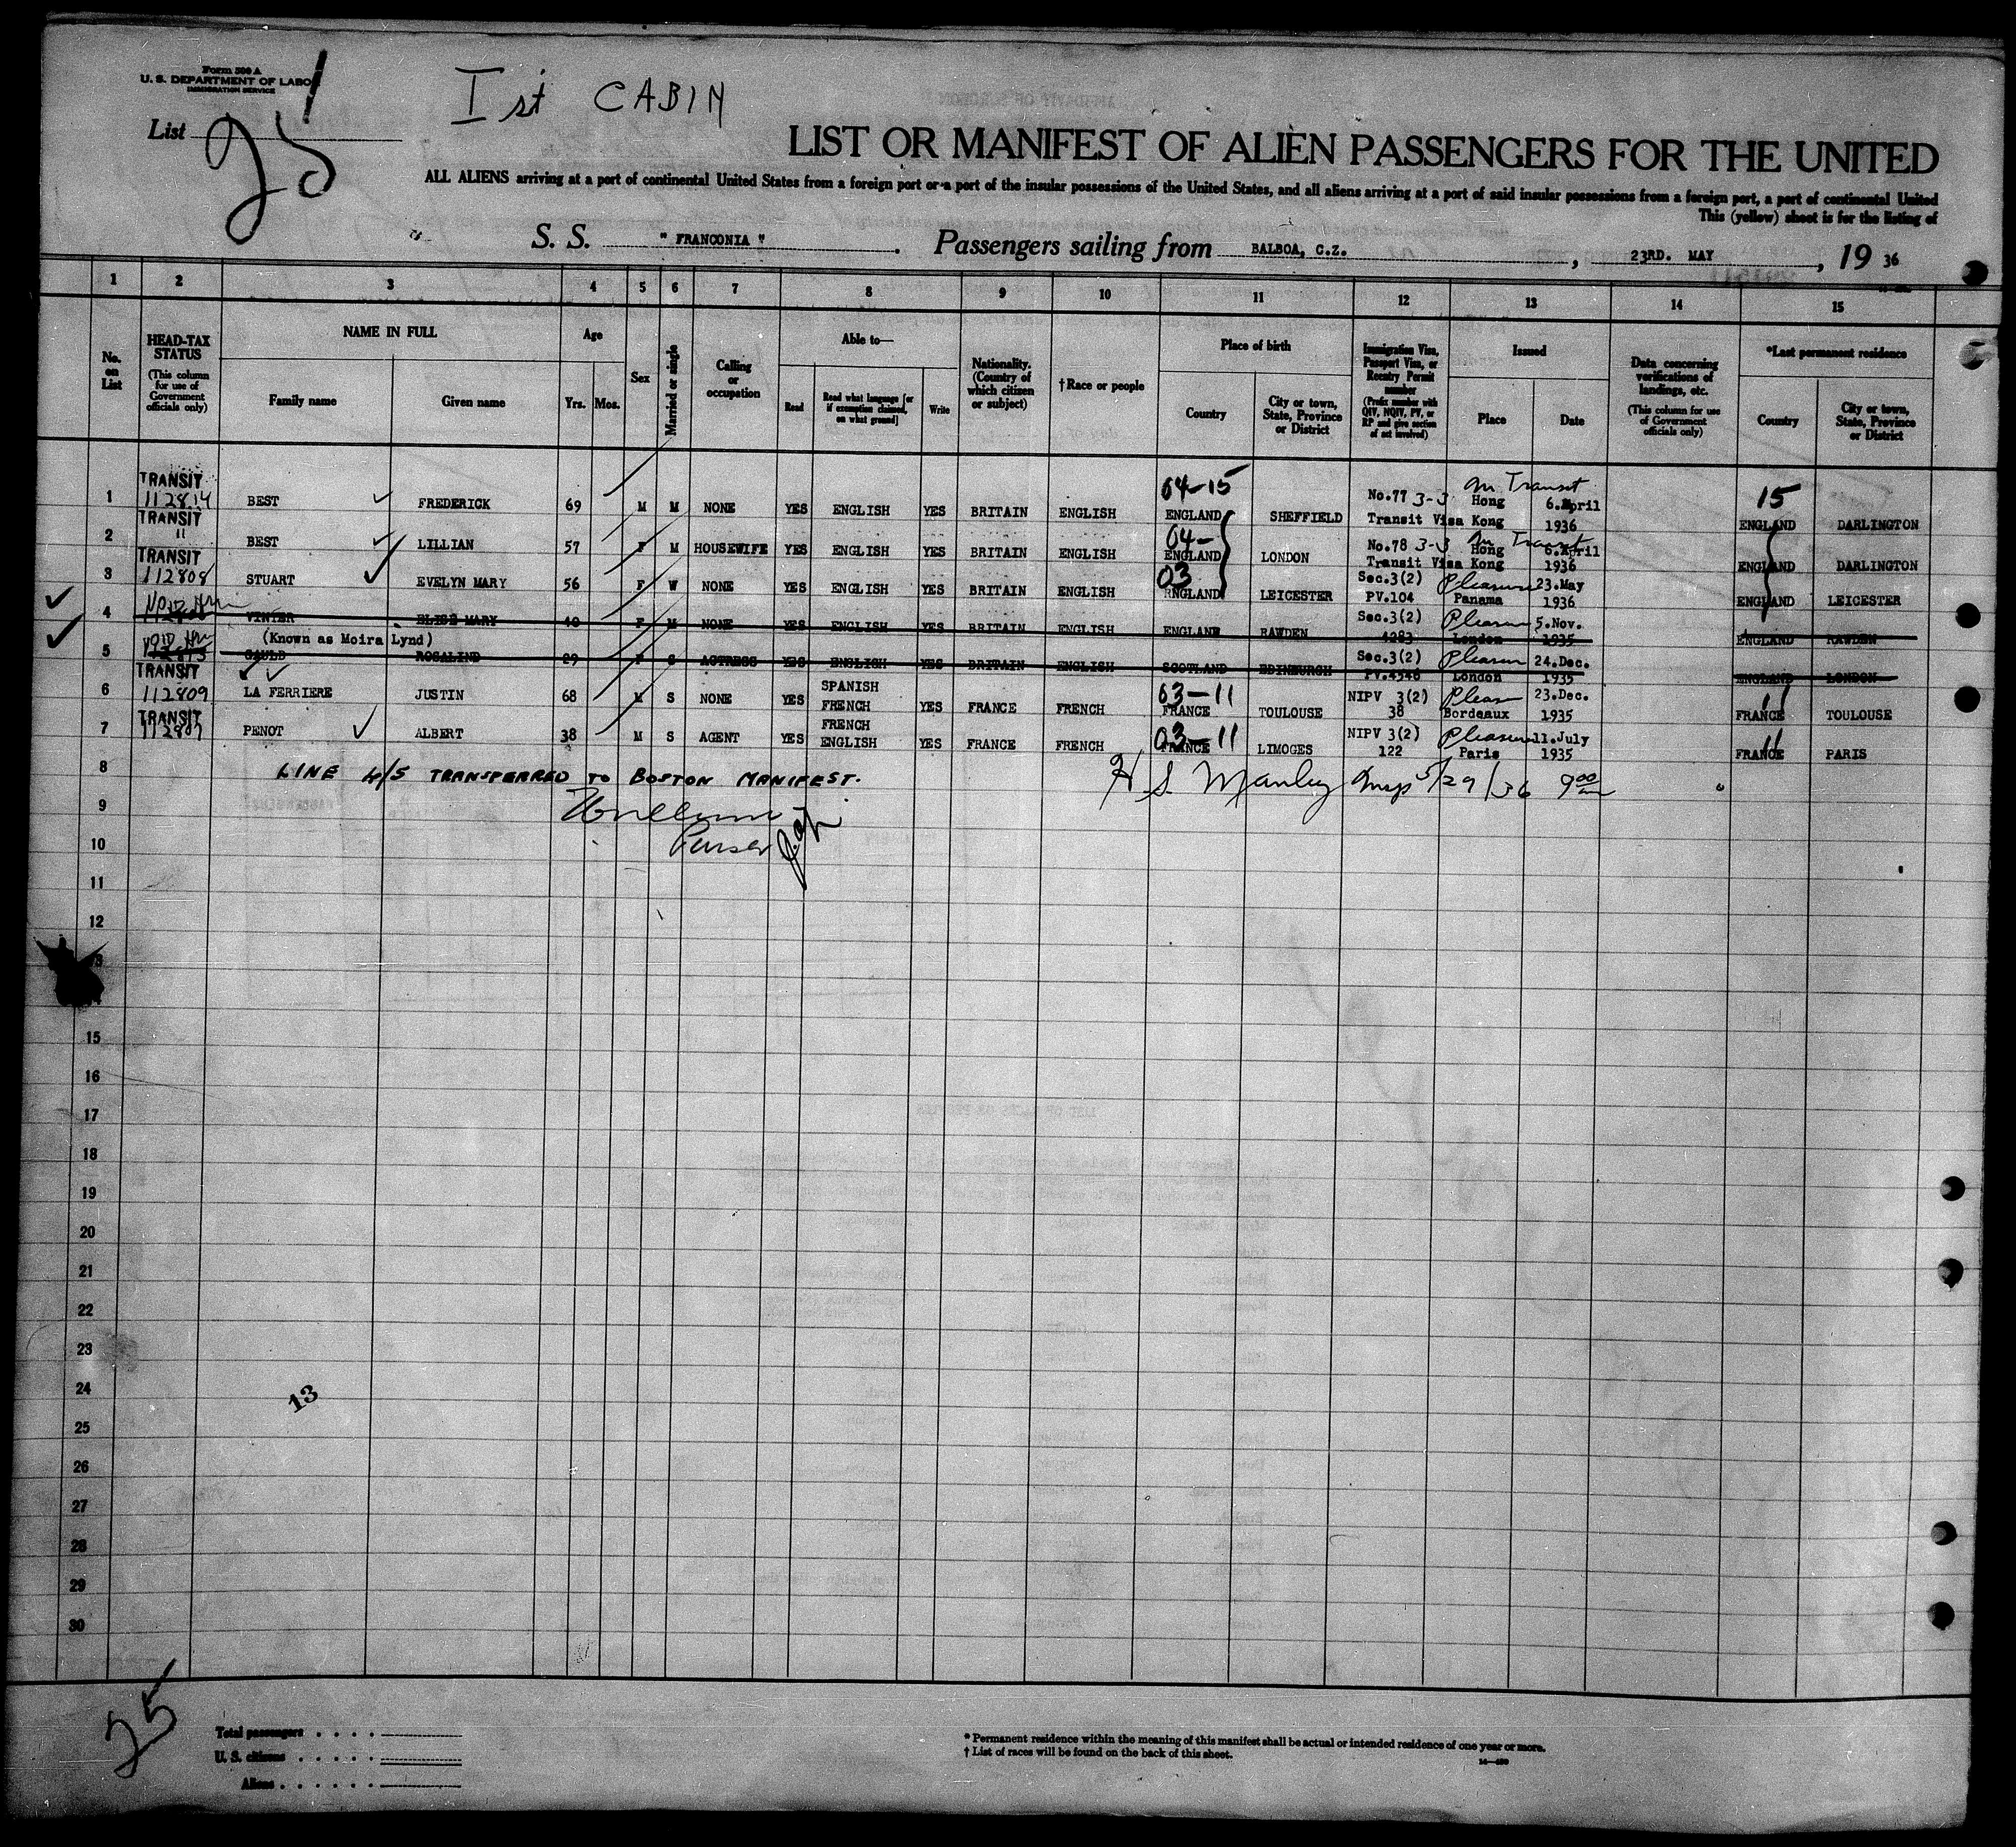 Form 500 A
U. S. DEPARTMENT OF LABOR
IMMIGRATION SERVICE
List 25
1
Ist CABIN
LIST OR MANIFEST OF ALIEN PASSENGERS FOR THE UNITED
ALL ALIENS arriving at a port of continental United States from a foreign port or a port of the insular possessions of the United States, and all aliens arriving at a port of said insular possessions from a foreign port, a port of continental United
This (yellow) sheet is for the listing of
S. S. " FRANCONIA ". Passengers sailing from BALBOA, C.Z. , 23RD. MAY , 19 36
1 2 3 4 5 6 7 8 9 10 11 12 13 14 15
No. on List
HEAD-TAX STATUS (This column for use of Government officials only)
NAME IN FULL
Family name
Given name
Age
Yrs. Mos.
Sex
Married or single
Calling or occupation
Able to—
Read
Read what language [or if exemption claimed, on what ground]
Write
Nationality. (Country of which citizen or subject)
†Race or people
Place of birth
Country
City or town, State, Province or District
Immigration Visa, Passport Visa, or Reentry Permit number (Prefix number with QIV, NQIV, PV, or RP and give section of act involved)
Issued
Place
Date
Data concerning verifications of landings, etc. (This column for use of Government officials only)
*Last permanent residence
Country
City or town, State, Province or District
1 TRANSIT 112814 BEST FREDERICK 69 M M NONE YES ENGLISH YES BRITAIN ENGLISH 64-15 ENGLAND SHEFFIELD No.77 3-3 Transit Visa In Transit Hong Kong 6.April 1936 15 ENGLAND DARLINGTON
2 TRANSIT " BEST LILLIAN 57 F M HOUSEWIFE YES ENGLISH YES BRITAIN ENGLISH 04- ENGLAND LONDON No.78 3-3 Transit Visa In Transit Hong Kong 6.April 1936 ENGLAND DARLINGTON
3 TRANSIT 112808 STUART EVELYN MARY 56 F W NONE YES ENGLISH YES BRITAIN ENGLISH 03 ENGLAND LEICESTER Sec.3(2) PV.104 Pleasure Panama 23.May 1936 ENGLAND LEICESTER
4 VINTER MARY 40 F M NONE YES ENGLISH YES BRITAIN ENGLISH ENGLAND RAWDEN Sec.3(2) 4283 Pleasure London 5.Nov. 1935 ENGLAND RAWDEN
(Known as Moira Lynd)
5 GAULD ROSALIND 29 F S ACTRESS YES ENGLISH YES BRITAIN ENGLISH SCOTLAND EDINBURGH Sec.3(2) PV.4346 Pleasure London 24.Dec. 1935 ENGLAND LONDON
6 TRANSIT 112809 LA FERRIERE JUSTIN 68 M S NONE YES SPANISH FRENCH YES FRANCE FRENCH 03-11 FRANCE TOULOUSE NIPV 3(2) 38 Pleasure Bordeaux 23.Dec. 1935 11 FRANCE TOULOUSE
7 TRANSIT 112807 PENOT ALBERT 38 M S AGENT YES FRENCH ENGLISH YES FRANCE FRENCH 03-11 FRANCE LIMOGES NIPV 3(2) 122 Pleasure Paris 11.July 1935 11 FRANCE PARIS
8 LINE 4/5 TRANSFERRED TO BOSTON MANIFEST. H S Manley Insp 5/29/36 9 00 am
9
Purser
10
11
12
15
16
17
18
19
20
21
22
23
24
13
25
26
27
28
29
30
25
Total passengers . . . .
U. S. citizens . . . . .
Aliens . . . . . .
* Permanent residence within the meaning of this manifest shall be actual or intended residence of one year or more.
† List of races will be found on the back of this sheet.